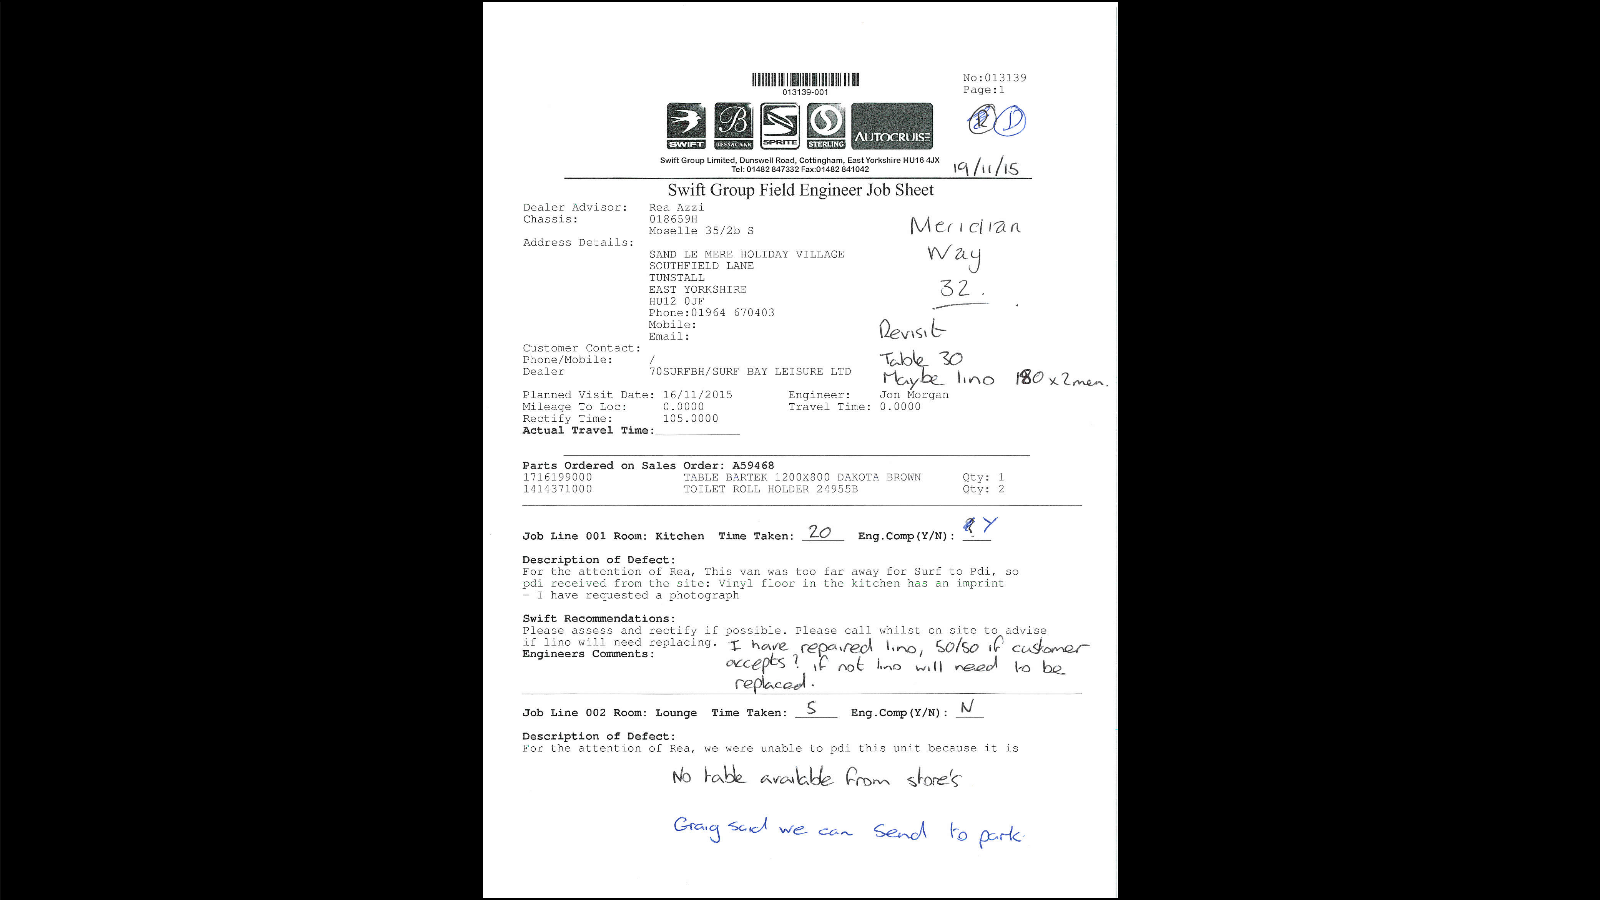 No:013139
Page:1
013139-001
SWIFT
BESSACARR
SPRITE
STERLING
AUTOCRUISE
D
Swift Group Limited, Dunswell Road, Cottingham, East Yorkshire HU16 4JX
Tel: 01482 847332 Fax:01482 841042
19/11/15
Swift Group Field Engineer Job Sheet
Dealer Advisor: Rea Azzi
Chassis: 018659H
Moselle 35/2b S
Meridian
Way
32.
Address Details:
SAND LE MERE HOLIDAY VILLAGE
SOUTHFIELD LANE
TUNSTALL
EAST YORKSHIRE
HU12 0JF
Phone:01964 670403
Mobile:
Email:
Revisit
Table 30
Maybe lino 180 x 2 men.
Customer Contact:
Phone/Mobile: /
Dealer 70SURFBH/SURF BAY LEISURE LTD
Planned Visit Date: 16/11/2015 Engineer: Jon Morgan
Mileage To Loc: 0.0000 Travel Time: 0.0000
Rectify Time: 105.0000
Actual Travel Time:
Parts Ordered on Sales Order: A59468
1716199000 TABLE BARTEK 1200X800 DAKOTA BROWN Qty: 1
1414371000 TOILET ROLL HOLDER 24955B Qty: 2
Job Line 001 Room: Kitchen Time Taken: 20 Eng.Comp(Y/N): Y
Description of Defect:
For the attention of Rea, This van was too far away for Surf to Pdi, so
pdi received from the site: Vinyl floor in the kitchen has an imprint
- I have requested a photograph
Swift Recommendations:
Please assess and rectify if possible. Please call whilst on site to advise
if lino will need replacing.
Engineers Comments:
I have repaired lino, 50/50 if customer
accepts? if not lino will need to be
replaced.
Job Line 002 Room: Lounge Time Taken: 5 Eng.Comp(Y/N): N
Description of Defect:
For the attention of Rea, we were unable to pdi this unit because it is
No table available from store's
Graig said we can send to park